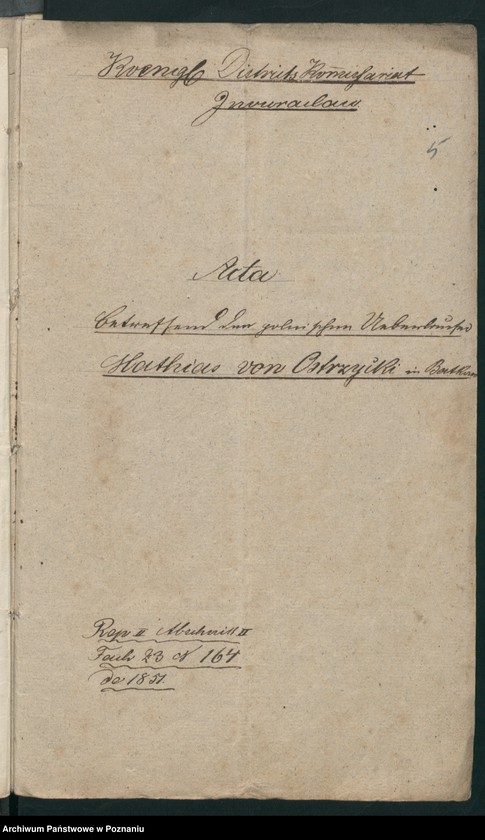 Koenigl Districts Kom̅issariat
Inowraclaw
5
Acta
betreffend den polnischen Ueberläufer
Mathias von Ostrzycki in
Rep II Abschnitt II
Fach 23 N 164
de 1851.
Archiwum Państwowe w Poznaniu